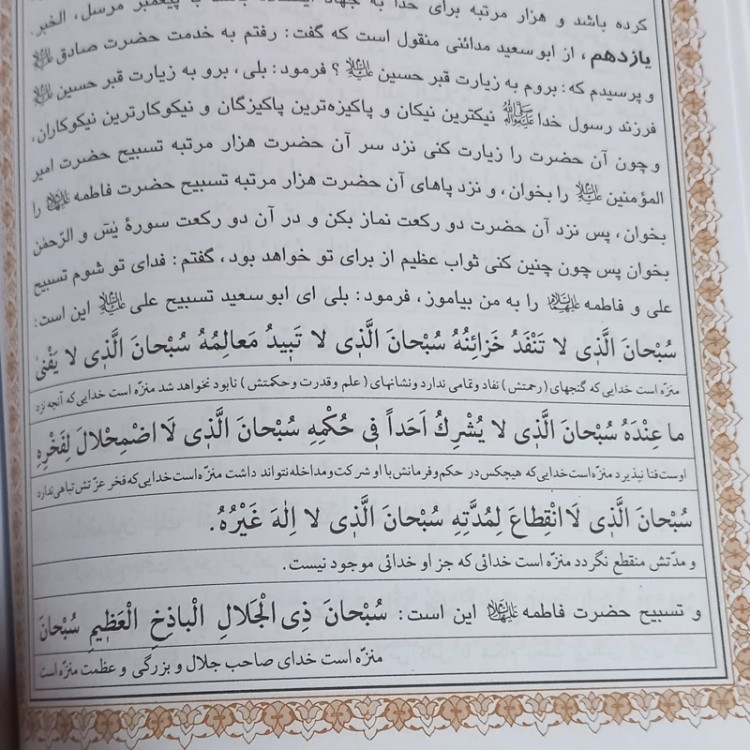 کرده باشد و هزار مرتبه برای خدا به جهاد ایستاده باشد با پیغمبر مرسل، الخبر.
یازدهم، از ابوسعید مدائنی منقول است که گفت: رفتم به خدمت حضرت صادق علیه‌السلام
و پرسیدم که: بروم به زیارت قبر حسین علیه‌السلام؟ فرمود: بلی، برو به زیارت قبر حسین علیه‌السلام
فرزند رسول خدا صلی‌الله‌علیه‌وآله نیکترین نیکان و پاکیزه‌ترین پاکیزگان و نیکوکارترین نیکوکاران،
و چون آن حضرت را زیارت کنی نزد سر آن حضرت هزار مرتبه تسبیح حضرت امیر
المؤمنین علیه‌السلام را بخوان، و نزد پاهای آن حضرت هزار مرتبه تسبیح حضرت فاطمه علیهاالسلام را
بخوان، پس نزد آن حضرت دو رکعت نماز بکن و در آن دو رکعت سورهٔ یٰسٓ و الرّحمٰن
بخوان پس چون چنین کنی ثواب عظیم از برای تو خواهد بود، گفتم: فدای تو شوم تسبیح
علی و فاطمه علیهماالسلام را به من بیاموز، فرمود: بلی ای ابوسعید تسبیح علی علیه‌السلام این است:
سُبْحانَ الَّذِی لا تَنْفَدُ خَزائِنُهُ سُبْحانَ الَّذِی لا تَبِیدُ مَعالِمُهُ سُبْحانَ الَّذِی لا یَفْنیٰ
منزّه است خدایی که گنجهای (رحمتش) نفاد وتمامی ندارد ونشانهای (علم وقدرت وحکمتش) نابود نخواهد شد منزّه است خدایی که آنچه نزد
ما عِنْدَهُ سُبْحانَ الَّذِی لا یُشْرِكُ اَحَداً فِی حُکْمِهِ سُبْحانَ الَّذِی لَا اضْمِحْلالَ لِفَخْرِهِ
اوست فنا نپذیرد منزّه است خدایی که هیچکس در حکم و فرمانش با او شرکت و مداخله نتواند داشت منزّه است خدایی که فخر عزّتش تباهی ندارد
سُبْحانَ الَّذِی لَا انْقِطاعَ لِمُدَّتِهِ سُبْحانَ الَّذِی لا اِلٰهَ غَیْرُهُ.
و مدّتش منقطع نگردد منزّه است خدائی که جز او خدائی موجود نیست.
و تسبیح حضرت فاطمه علیهاالسلام این است: سُبْحانَ ذِی الْجَلالِ الْباذِخِ الْعَظِیمِ سُبْحانَ
منزّه است خدای صاحب جلال و بزرگی و عظمت منزّه است